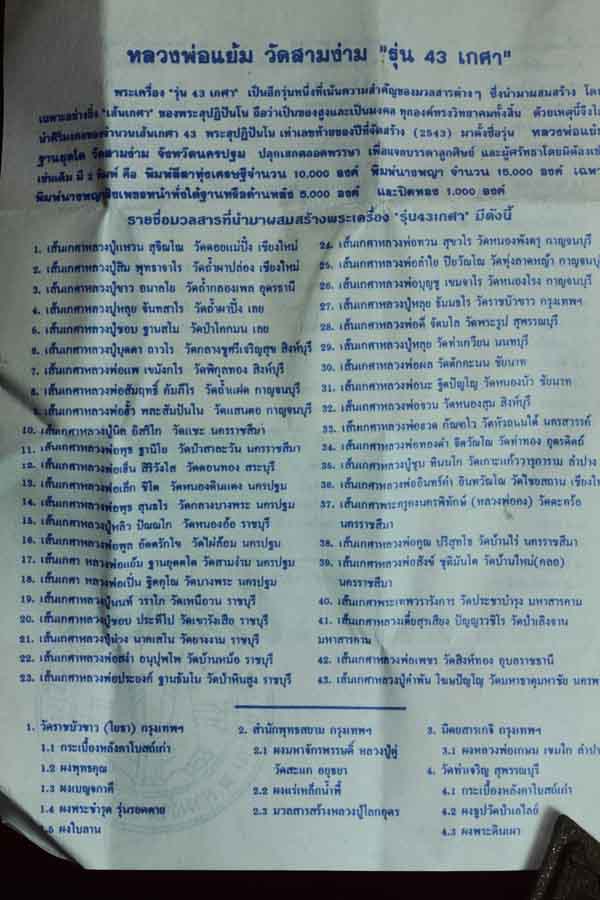 หลวงพ่อแย้ม วัดสามง่าม "รุ่น 43 เกศา"
พระเครื่อง "รุ่น 43 เกศา" เป็นอีกรุ่นหนึ่งที่เน้นความสำคัญของมวลสารต่างๆ ซึ่งนำมาผสมสร้าง โดย
เฉพาะอย่างยิ่ง "เส้นเกศา" ของพระสุปฏิปันโน ถือว่าเป็นของสูงและเป็นมงคล ทุกองค์ทรงวิทยาคมทั้งสิ้น ด้วยเหตุนี้จึงได้
นำศิริมงคลของจำนวนเส้นเกศา 43 พระสุปฏิปันโน เท่าเลขท้ายของปีที่จัดสร้าง (2543) มาตั้งชื่อรุ่น หลวงพ่อแย้ม
ฐานยุตโต วัดสามง่าม จังหวัดนครปฐม ปลุกเสกตลอดพรรษา เพื่อแจกบรรดาลูกศิษย์ และผู้ศรัทธาโดยมิต้องเช่า
เช่นเดิม มี 2 พิมพ์ คือ พิมพ์ลีลาทุ่งเศรษฐีจำนวน 10,000 องค์ พิมพ์นางพญา จำนวน 15,000 องค์ เฉพาะ
พิมพ์นางพญาฝังเพชรหน้าทั่งใต้ฐานหรือด้านหลัง 5,000 องค์ และปิดทอง 1,000 องค์
รายชื่อมวลสารที่นำมาผสมสร้างพระเครื่อง "รุ่น43เกศา" มีดังนี้
1. เส้นเกศาหลวงปู่แหวน สุจิณโณ วัดดอยแม่ปั๋ง เชียงใหม่
2. เส้นเกศาหลวงปู่สิม พุทธาจาโร วัดถ้ำผาปล่อง เชียงใหม่
3. เส้นเกศาหลวงปู่ขาว อนาลโย วัดถ้ำกลองเพล อุดรธานี
4. เส้นเกศาหลวงปู่หลุย จันทสาโร วัดถ้ำผาบิ้ง เลย
5. เส้นเกศาหลวงปู่ชอบ ฐานสโม วัดป่าโคกมน เลย
6. เส้นเกศาหลวงปู่บุดดา ถาวโร วัดกลางชูศรีเจริญสุข สิงห์บุรี
7. เส้นเกศาหลวงพ่อแพ เขมังกโร วัดพิกุลทอง สิงห์บุรี
8. เส้นเกศาหลวงพ่อสัมฤทธิ์ คัมภีโร วัดถ้ำแฝด กาญจนบุรี
9. เส้นเกศาหลวงพ่อฮั้ว พละสัมปันโน วัดแสนตอ กาญจนบุรี
10. เส้นเกศาหลวงปู่นิล อิสริโก วัด นครราชสีมา
11. เส้นเกศาหลวงพ่อพุธ ฐานิโย วัดป่าสาละวัน นครราชสีมา
12. เส้นเกศาหลวงพ่อเส็น สิริวังโส วัดดอนทอง สระบุรี
13. เส้นเกศาหลวงพ่อเล็ก ชิโต วัดหนองดินแดง นครปฐม
14. เส้นเกศาหลวงพ่อพุธ สุนธโร วัดกลางบางพระ นครปฐม
15. เส้นเกศาหลวงปู่หลิว ปัณณโก วัดหนองอ้อ ราชบุรี
16. เส้นเกศาหลวงพ่อพูล อัตตรักโข วัดไผ่ล้อม นครปฐม
17. เส้นเกศา หลวงพ่อแย้ม ฐานยุตตโต วัดสามง่าม นครปฐม
18. เส้นเกศา หลวงพ่อเปิ่น ฐิตคุโณ วัดบางพระ นครปฐม
19. เส้นเกศาหลวงปู่นนท์ วราโภ วัดเหนือวน ราชบุรี
20. เส้นเกศาหลวงปู่ชอบ ประทีโป วัดเขารังเสือ ราชบุรี
21. เส้นเกศาหลวงปู่ม่วง นาคเสโน วัดยางงาม ราชบุรี
22. เส้นเกศาหลวงพ่อสง่า อนุปุพโพ วัดบ้านหม้อ ราชบุรี
23. เส้นเกศาหลวงพ่อประยงค์ ฐานธัมโม วัดป่าหินสูง ราชบุรี
24. เส้นเกศาหลวงพ่อทวน สุขวโร วัดหนองพังตรุ กาญจนบุรี
25. เส้นเกศาหลวงพ่อลำไย ปิยวัณโณ วัดทุ่งลาดหญ้า กาญจนบุรี
26. เส้นเกศาหลวงพ่อบุญชู เขมจาโร วัดหนองโรง กาญจนบุรี
27. เส้นเกศาหลวงปู่หลุย ธัมมธโร วัดราชบัวขาว กรุงเทพฯ
28. เส้นเกศาหลวงพ่อดี จัตมโล วัดพระรูป สุพรรณบุรี
29. เส้นเกศาหลวงปู่หลุย วัดท่าเกวียน นนทบุรี
30. เส้นเกศาหลวงพ่อผล วัดดักคะนน ชัยนาท
31. เส้นเกศาหลวงพ่อนะ ฐิตปัญโญ วัดหนองบัว ชัยนาท
32. เส้นเกศาหลวงพ่อจวน วัดหนองสุ่ม สิงห์บุรี
33. เส้นเกศาหลวงพ่อฮวด กัณฑโว วัดหัวถนนใต้ นครสวรรค์
34. เส้นเกศาหลวงพ่อทองดำ ฐิตวัณโณ วัดท่าทอง อุตรดิตถ์
35. เส้นเกศาหลวงปู่ชุ่ม ทินนโก วัดเกาะแก้ววารุการาม ลำปาง
36. เส้นเกศาหลวงพ่ออินทร์คำ อินทวัณโณ วัดไชยสถาน เชียงใหม่
37. เส้นเกศาพระครูคงนครพิทักษ์ (หลวงพ่อคง) วัดตะคร้อ
นครราชสีมา
38. เส้นเกศาหลวงพ่อคูณ ปริสุทโธ วัดบ้านไร่ นครราชสีมา
39. เส้นเกศาหลวงพ่อสังข์ ชุติมันโต วัดบ้านใหม่(คลอ)
นครราชสีมา
40. เส้นเกศาพระเทพวรารังการ วัดประชาบำรุง มหาสารคาม
41. เส้นเกศาหลวงเตี่ยสุรเสียง ปัญญาวชิโร วัดป่าเลิงจาน
มหาสารคาม
42. เส้นเกศาหลวงพ่อเพชร วัดสิงห์ทอง อุบลราชธานี
43. เส้นเกศาหลวงปู่คำพัน โฆษปัญโญ วัดมหาธาตุมหาชัย นครพนม
1. วัดราชบัวขาว (โยธา) กรุงเทพฯ
1.1 กระเบื้องหลังคาโบสถ์เก่า
1.2 ผงพุทธคุณ
1.3 ผงเบญจภาคี
1.4 ผงพระชำรุด รุ่นรอดตาย
1.5 ผงใบลาน
2. สำนักพุทธสยาม กรุงเทพฯ
2.1 ผงมหาจักรพรรดิ์ หลวงปู่ดู่
วัดสะแก อยุธยา
2.2 ผงแร่เหล็กน้ำพี้
2.3 มวลสารสร้างหลวงปู่โลกอุดร
3. นิตยสารเกจิ กรุงเทพฯ
3.1 ผงหลวงพ่อเกษม เขมโก ลำปาง
4. วัดท่าเจริญ สุพรรณบุรี
4.1 กระเบื้องหลังคาโบสถ์เก่า
4.2 ผงธูปวัดป่าเลไลย์
4.3 ผงพระดินเผา